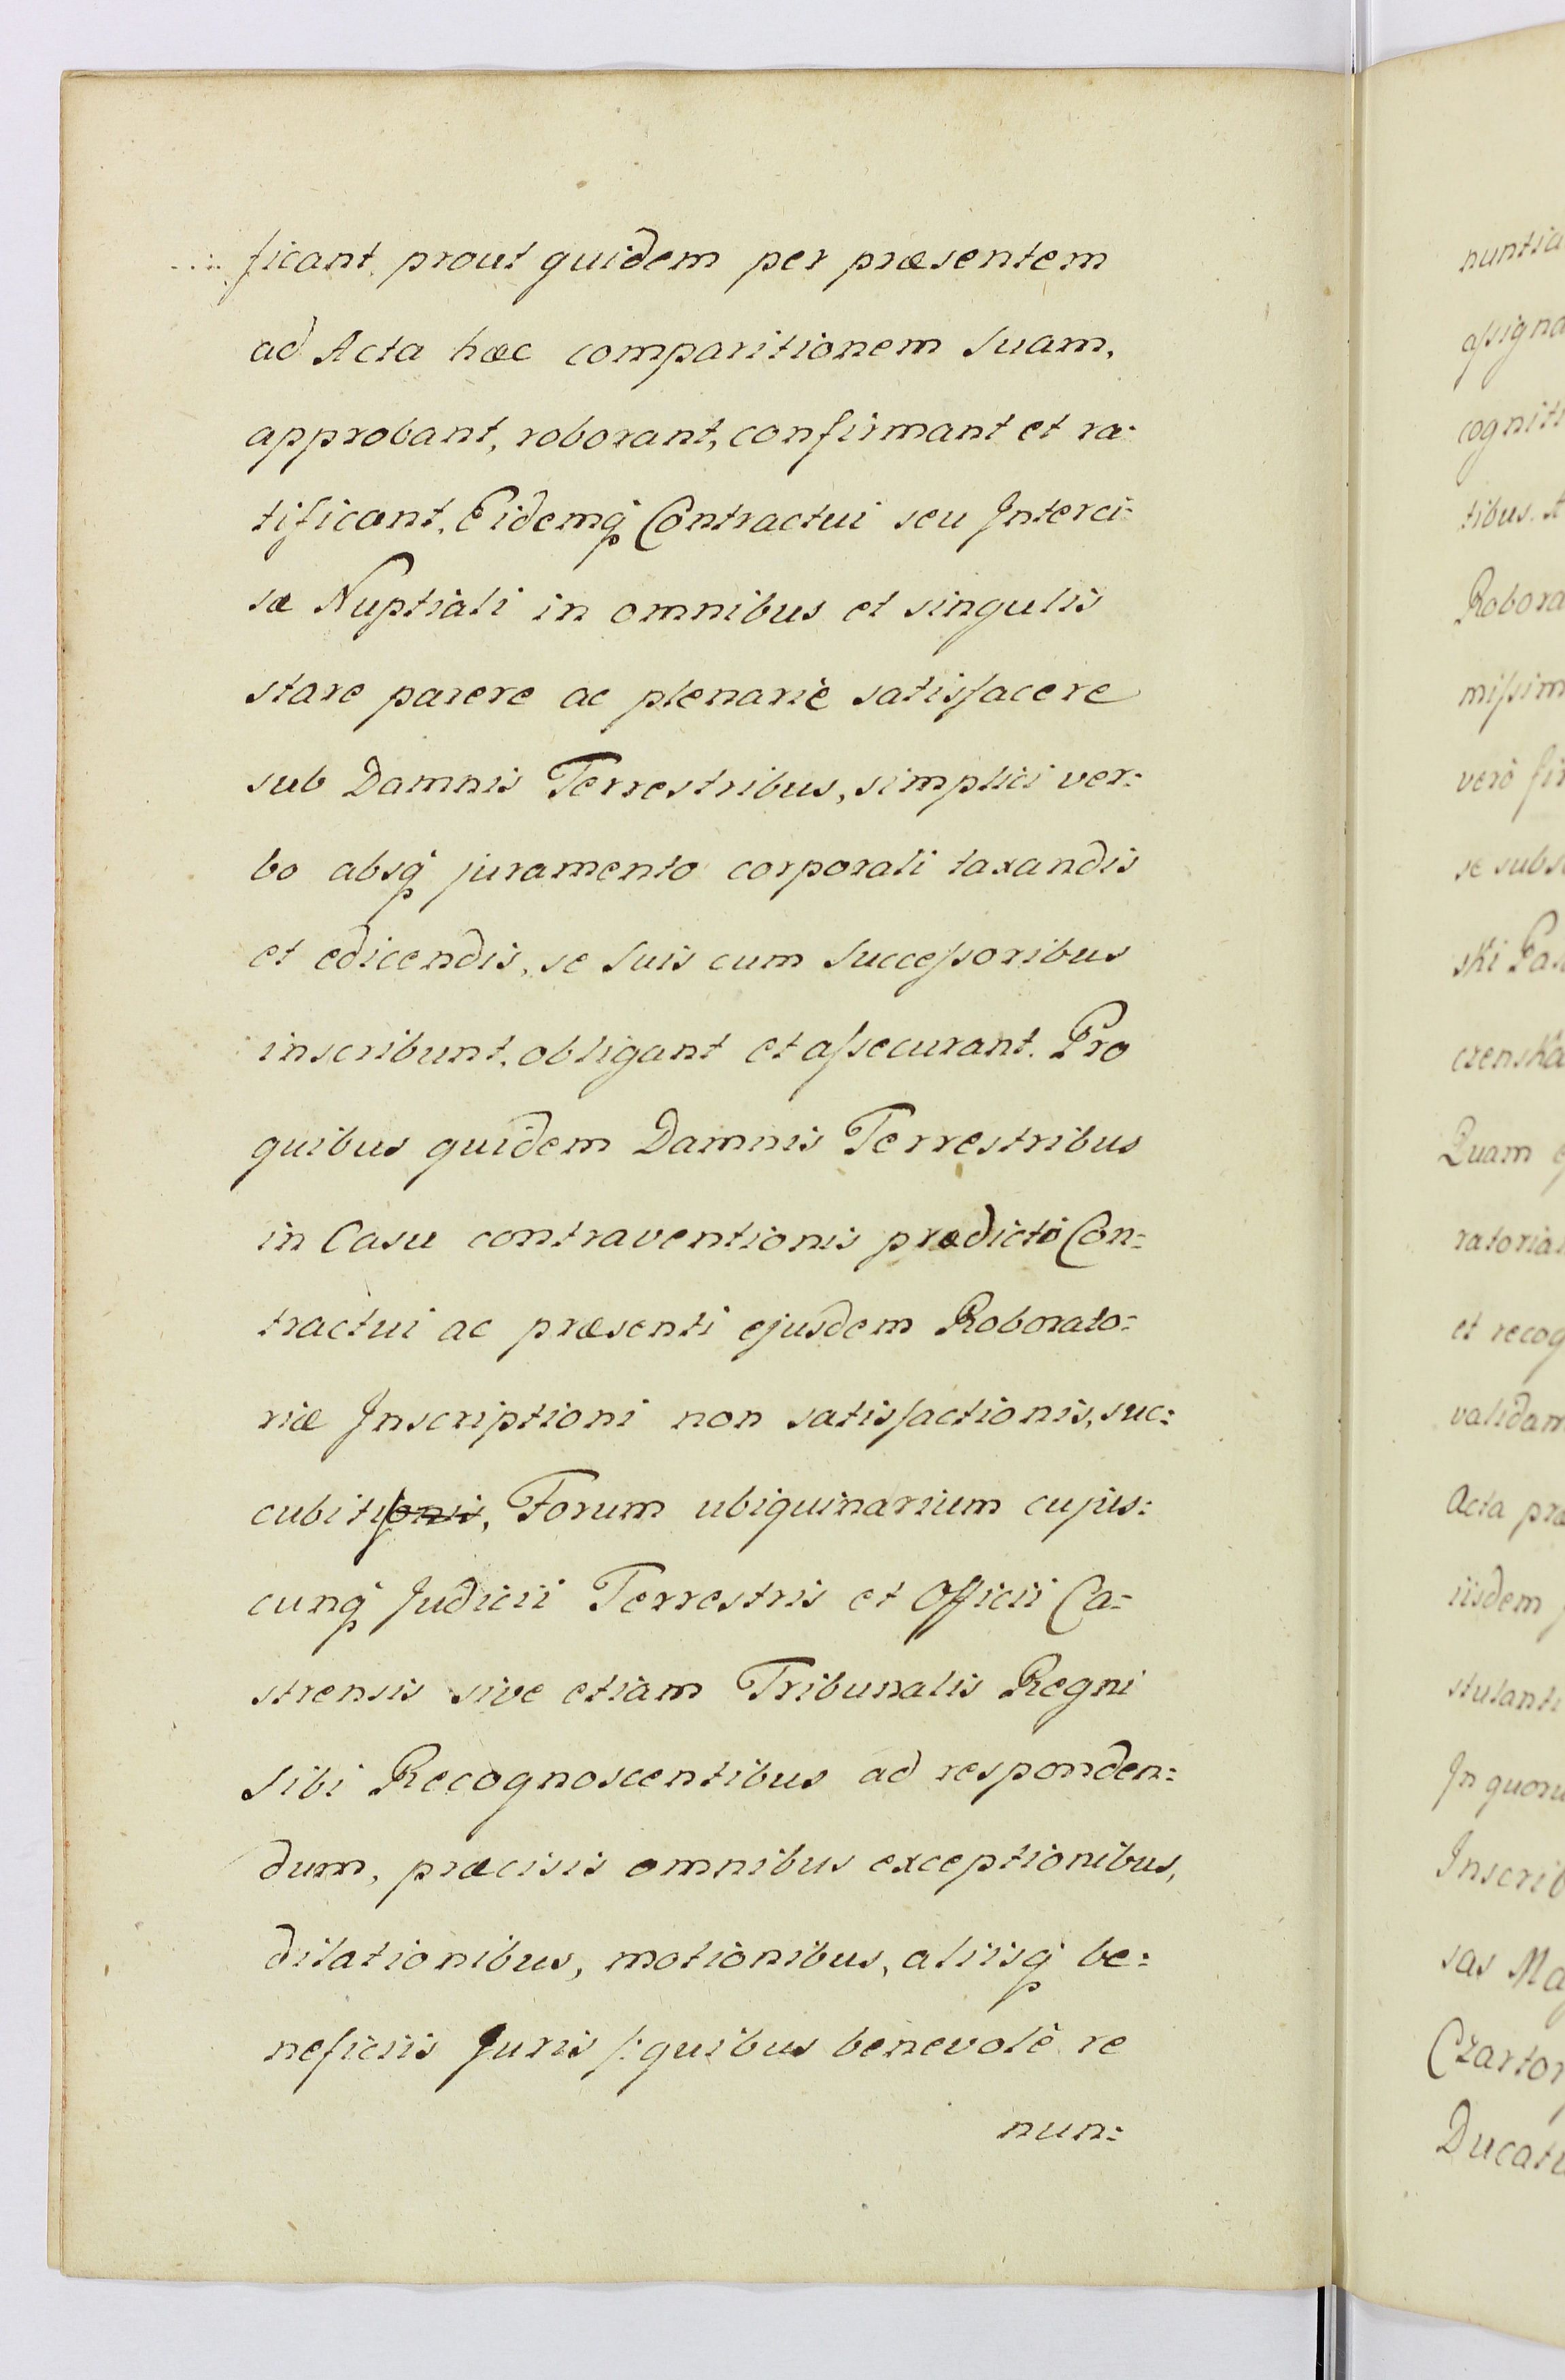 ficant, prout quidem per præsentem
ad Acta hæc comparitionem suam,
approbant, roborant, confirmant et ra:
tificant. Eidemq̃ Contractui seu Interci:
sæ Nuptiali in omnibus et singulis
stare parere ac plenariè satisfacere
sub Damnis Terrestribus, simplici ver:
bo absq̃ juramento corporali taxandis
et edicendis, se suis cum successoribus
inscribunt, obligant et assecurant. Pro
quibus quidem Damnis Terrestribus
in Casu contraventionis prædicto Con:
tractui ac præsenti ejusdem Roborato:
riæ Inscriptioni non satisfactionis, suc:
cubitionis, Forum ubiquinarium cujus:
cunq̃ Judicii Terrestris et Officii Ca:
strensis sive etiam Tribunalis Regni
sibi Recognoscentibus ad responden:
dum, præcisis omnibus exceptionibus,
dilationibus, motionibus, aliisq̃ be:
neficiis Juris /: quibus benevolè re
nun:
nuntia
assigna
cogniti
tibus. A
Robora
missim
verò fir
se subs
ski Pa
czenska
Quam
ratoria
et recog
validam
Acta præ
iisdem
stulanti
In quoru
Inscrib
sas Ma
Czartor
Ducatu